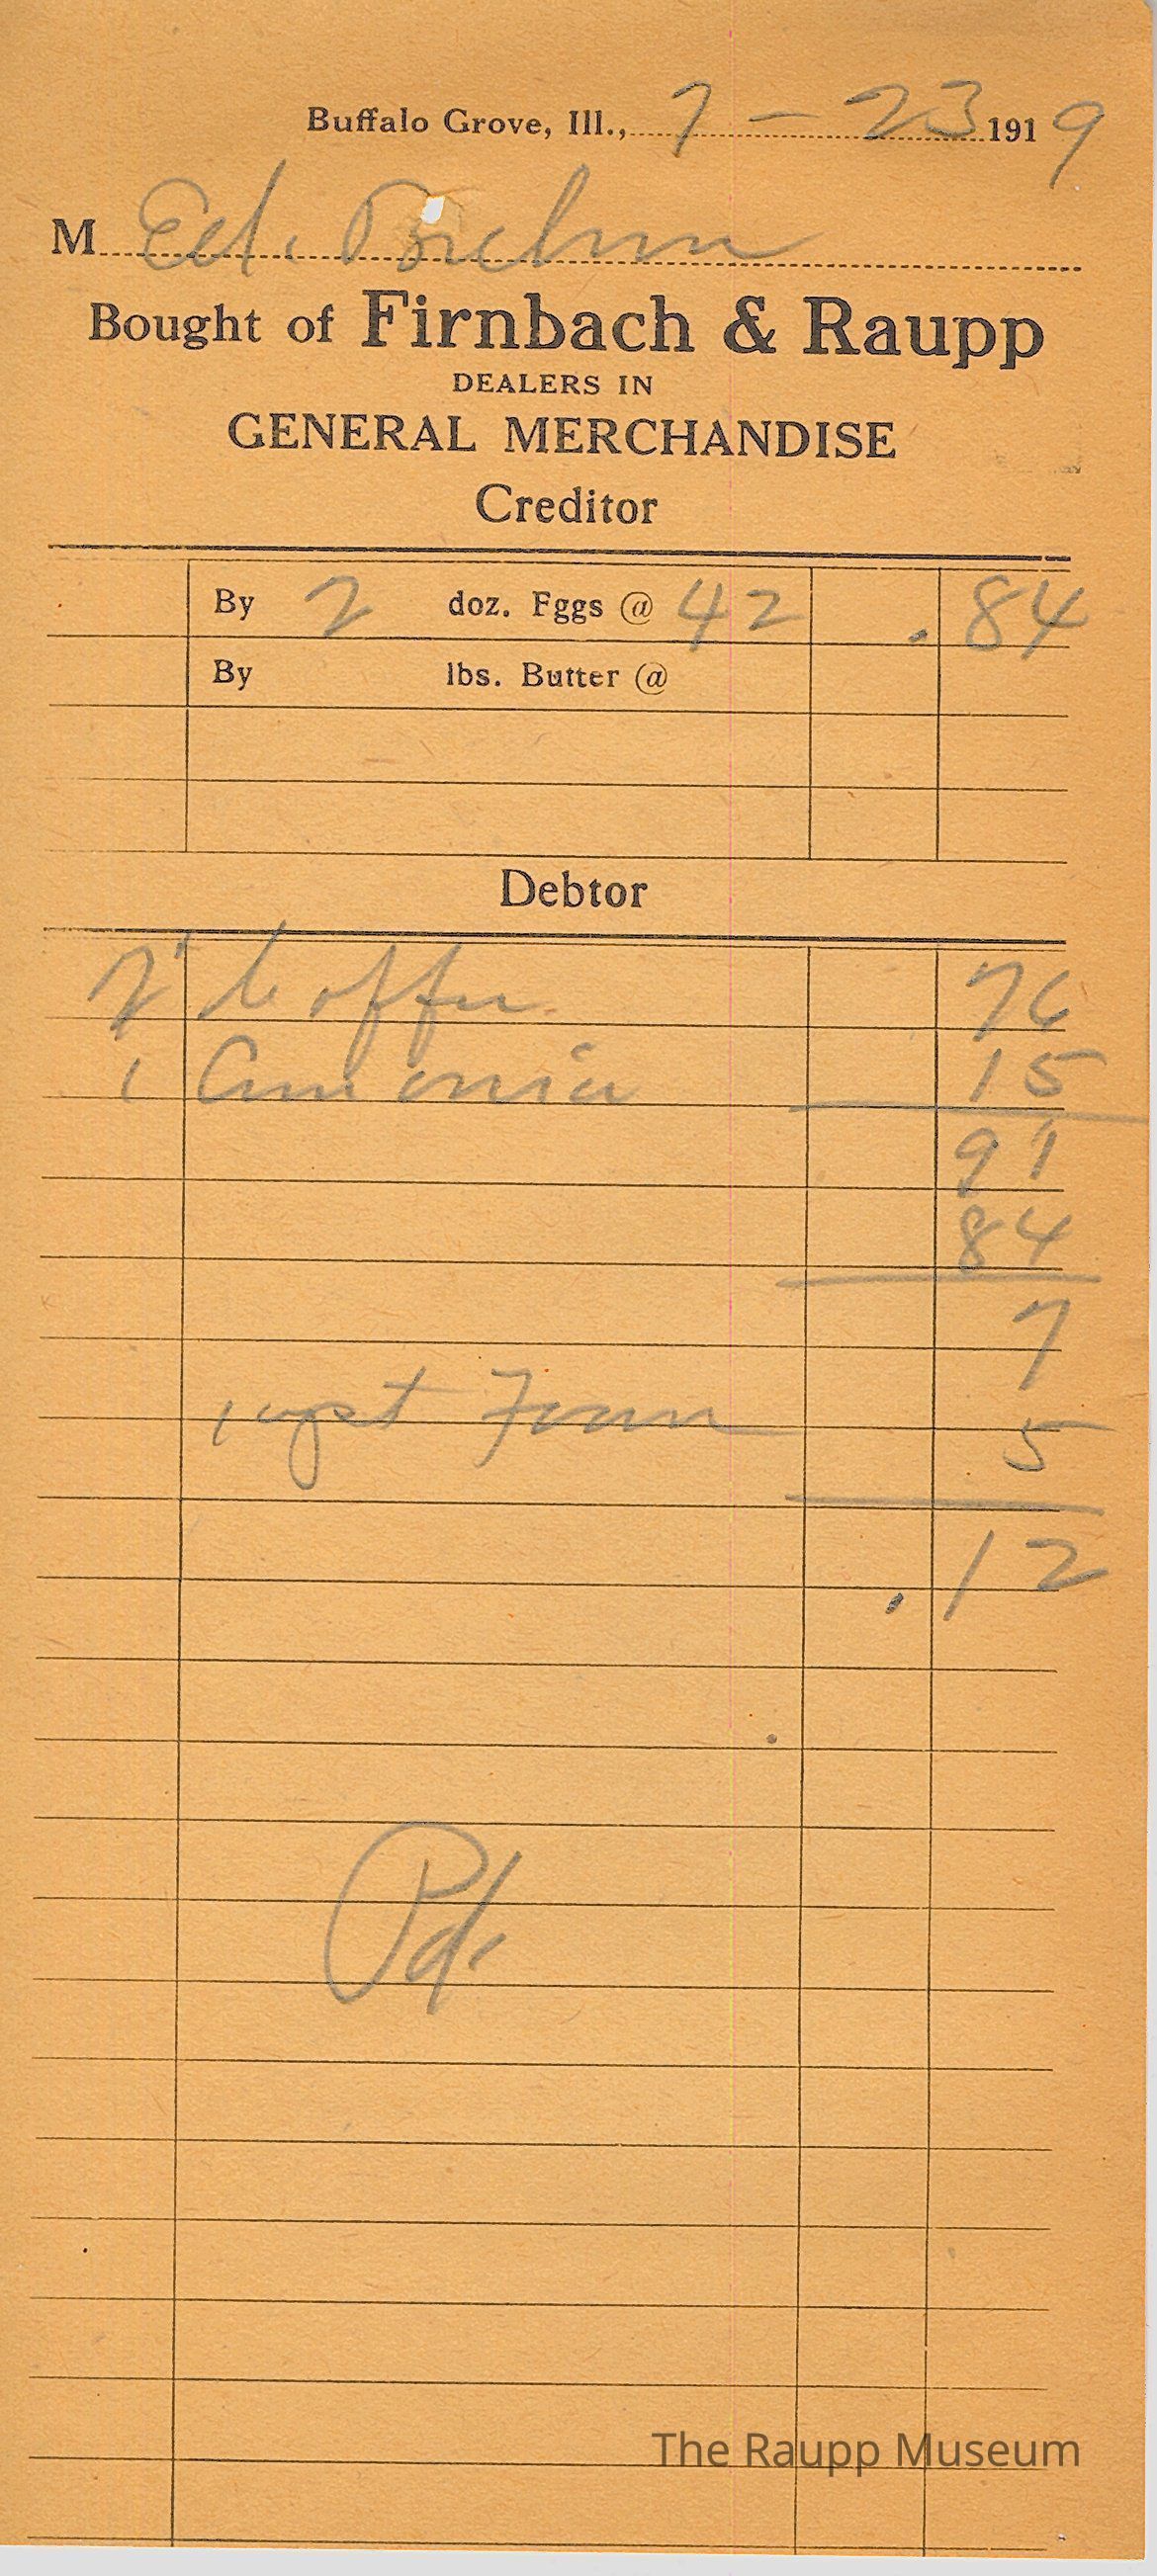 Buffalo Grove, Ill., 7 - 23 1919
M Ed. Biehm
Bought of Firnbach & Raupp
DEALERS IN
GENERAL MERCHANDISE
Creditor
By 2 doz. Fggs @ 42 .84
By lbs. Butter @
Debtor
2 Coffee 76
1 Amonia 15
91
84
7
1 yst Foam 5
.12
Pd.
The Raupp Museum